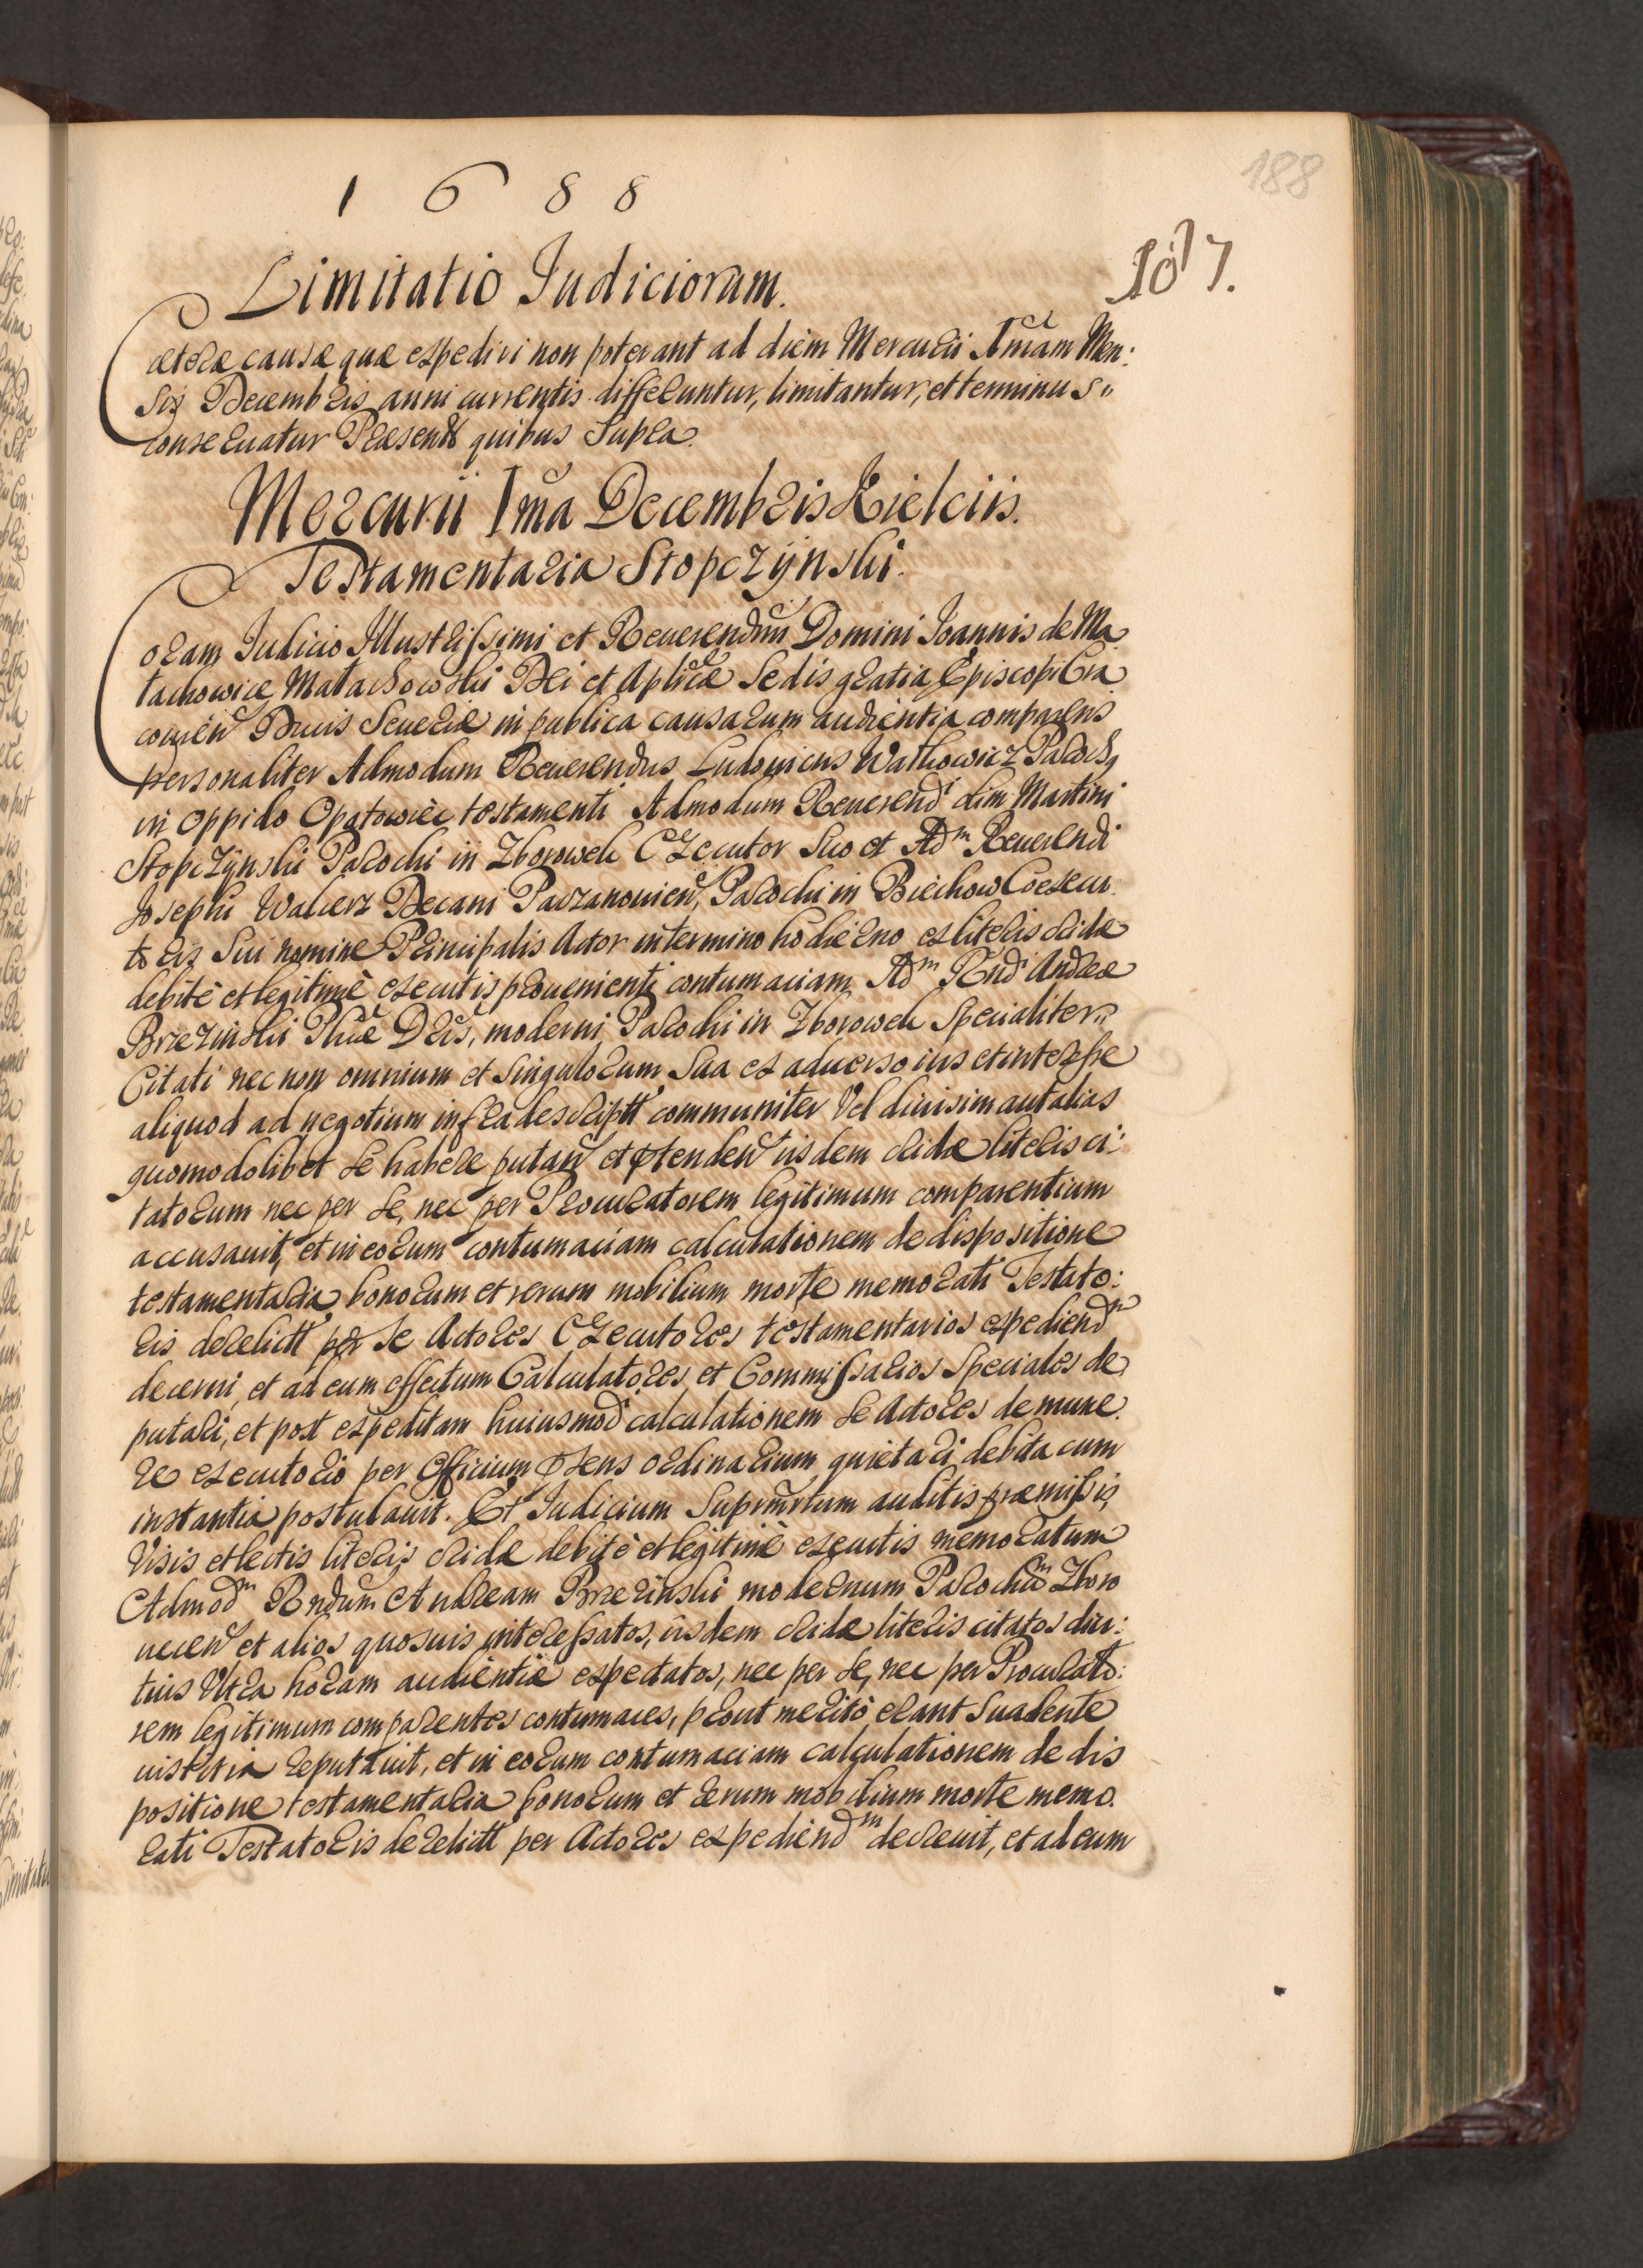 188
1 6 8 8
187.
Limitatio Judiciorum.
Cæteræ causæ quæ expediri non poterant ad diem Mercurii 1mam Men:
sis Decembris anni currentis differuntur, limitantur, et terminus
conseruatur Præsentt quibus Supra.
Mercurii 1ma Decembris Kielciis.
Testamentaria Stopczÿnski.
Coram Judicio Illustrissimi et Reuerendmi Domini Joannis de Ma
łachowice Małachowski Dei et Aplicæ Sedis gratia Episcopi Cra
couien Ducis Seueriæ in publica causarum audientia comparens
personaliter Admodum Reuerendus Ludouicus Walkowicz Paroch9
in Oppido Opatowiec testamenti Admodum Reuerendi olim Martini
Stopczÿnski Parochi in Zborowek Executor Suo et Adm Reuerendi
Josephi Walierz Decani Paczanouien, Parochi in Biechow Coexecu
toris Sui nomine Principalis Actor in termino hodierno ex literis cridæ
debite et legitimè executis prouenienti contumaciam Adm Rndi Andreæ
Brzezinski Phiæ Dris, moderni Parochi in Zborowek Specialiter
Citati nec non omnium et singulorum Sua ex aduerso ius et interesse
aliquod ad negotium infra descriptt communiter Vel diuisim aut alias
quomodolibet se habere putan et prtenden iisdem cridæ literis ci:
tatorum nec per se, nec per Procuratorem legitimum comparentium
accusauit, et in eorum contumaciam calculationem de dispositione
testamentaria bonorum et rerum mobilium morte memorati Testato:
ris derelictt per se Actores Executores testamentarios expediendm
decerni, et ad eum effectum Calculatores et Commissarios Speciales de
putari, et post expeditam huiusmodi calculationem se Actores de mune
re executorio per Officium prsens ordinarium quietari debita cum
instantia postulauit. Et Judicium Suprmrtum auditis præmissis,
Visis et lectis literis cridæ debitè et legitimè executis memoratum
Admodm Rndum Andream Brzezinski modernum Parochum Zboro
uecen et alios quosuis interessatos, iisdem cridæ literis citatos diu:
tius Vltra horam audientiæ expectatos, nec per se, nec per Procurato:
rem legitimum comparentes contumaces, prout meritò erant Suadente
iustitia reputauit, et in eorum contumaciam calculationem de dis
positione testamentaria bonorum et rerum mobilium morte memo.
rati Testatoris derelictt per Actores expediendm decreuit, et ad eum